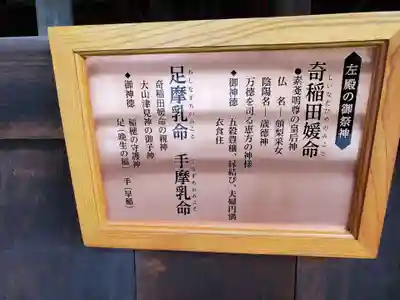 左殿の御祭神
くしいなだひめのみこと
奇稲田媛命
◆素戔嗚尊の皇后神
仏名 頗梨采女
陰陽名―歳徳神
万徳を司る恵方の神様
◆御神徳 五穀豊穣、縁結び、夫婦円満
衣食住
あしなずちのみこと
足摩乳命 手摩乳命
奇稲田媛命の親神
大山津見神の御子神
◆御神徳 稲穂の守護神
足(晩生の稲) 手(早稲)